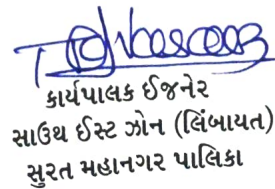 કાર્યપાલક ઈજનેર
સાઉથ ઈસ્ટ ઝોન (લિંબાયત)
સુરત મહાનગર પાલિકા